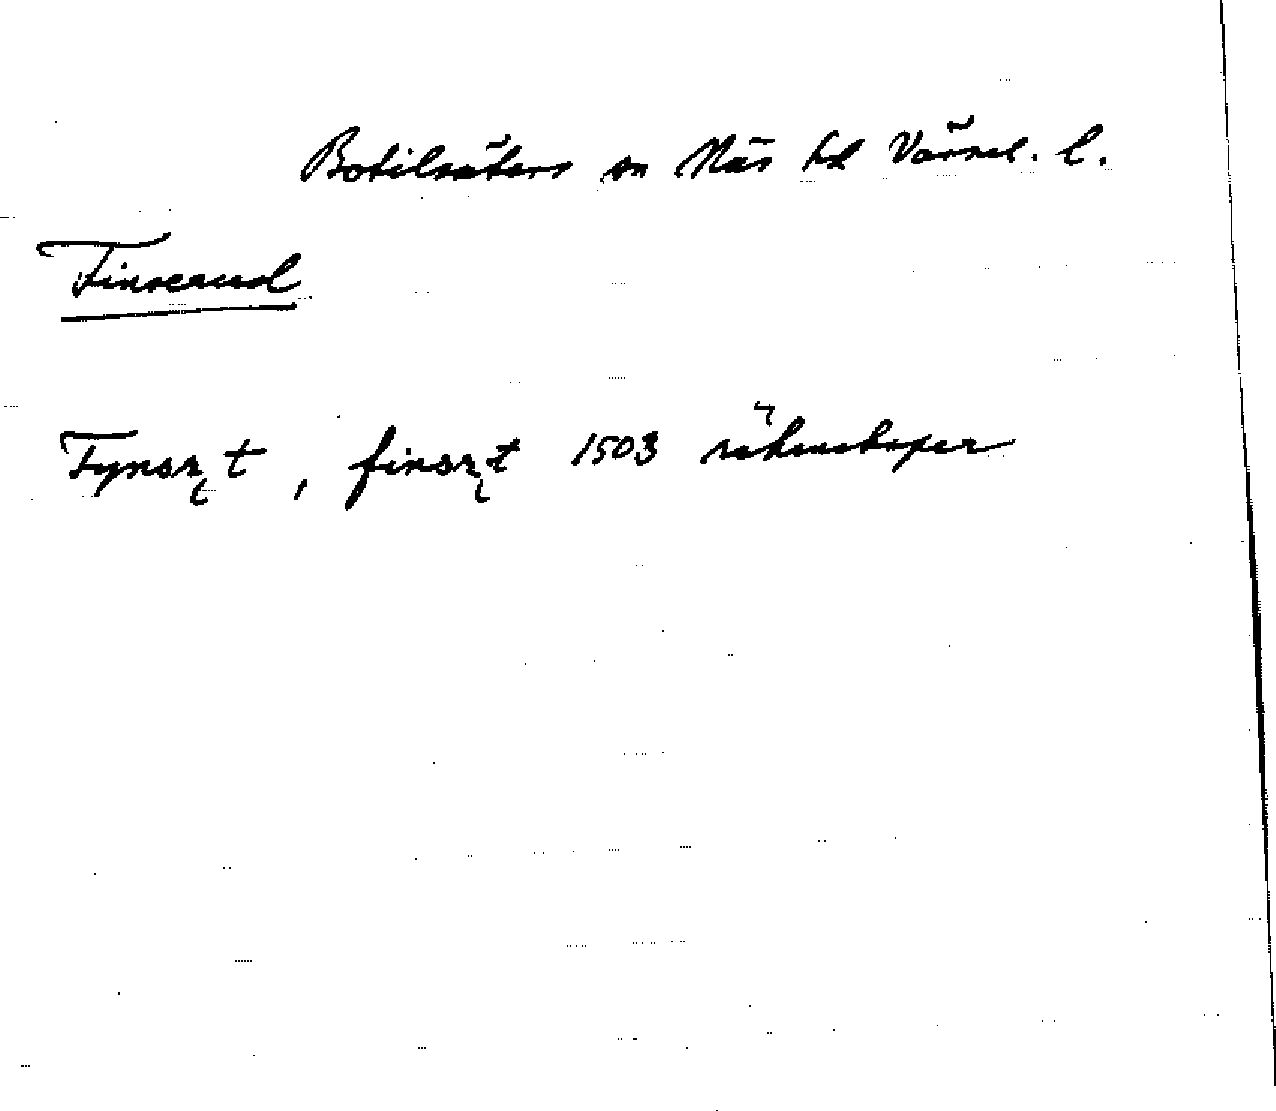 Botilsäters sn Näs hd Värml. l.
Finserud
Fynsrt, finsrt 1503 räkenskaper